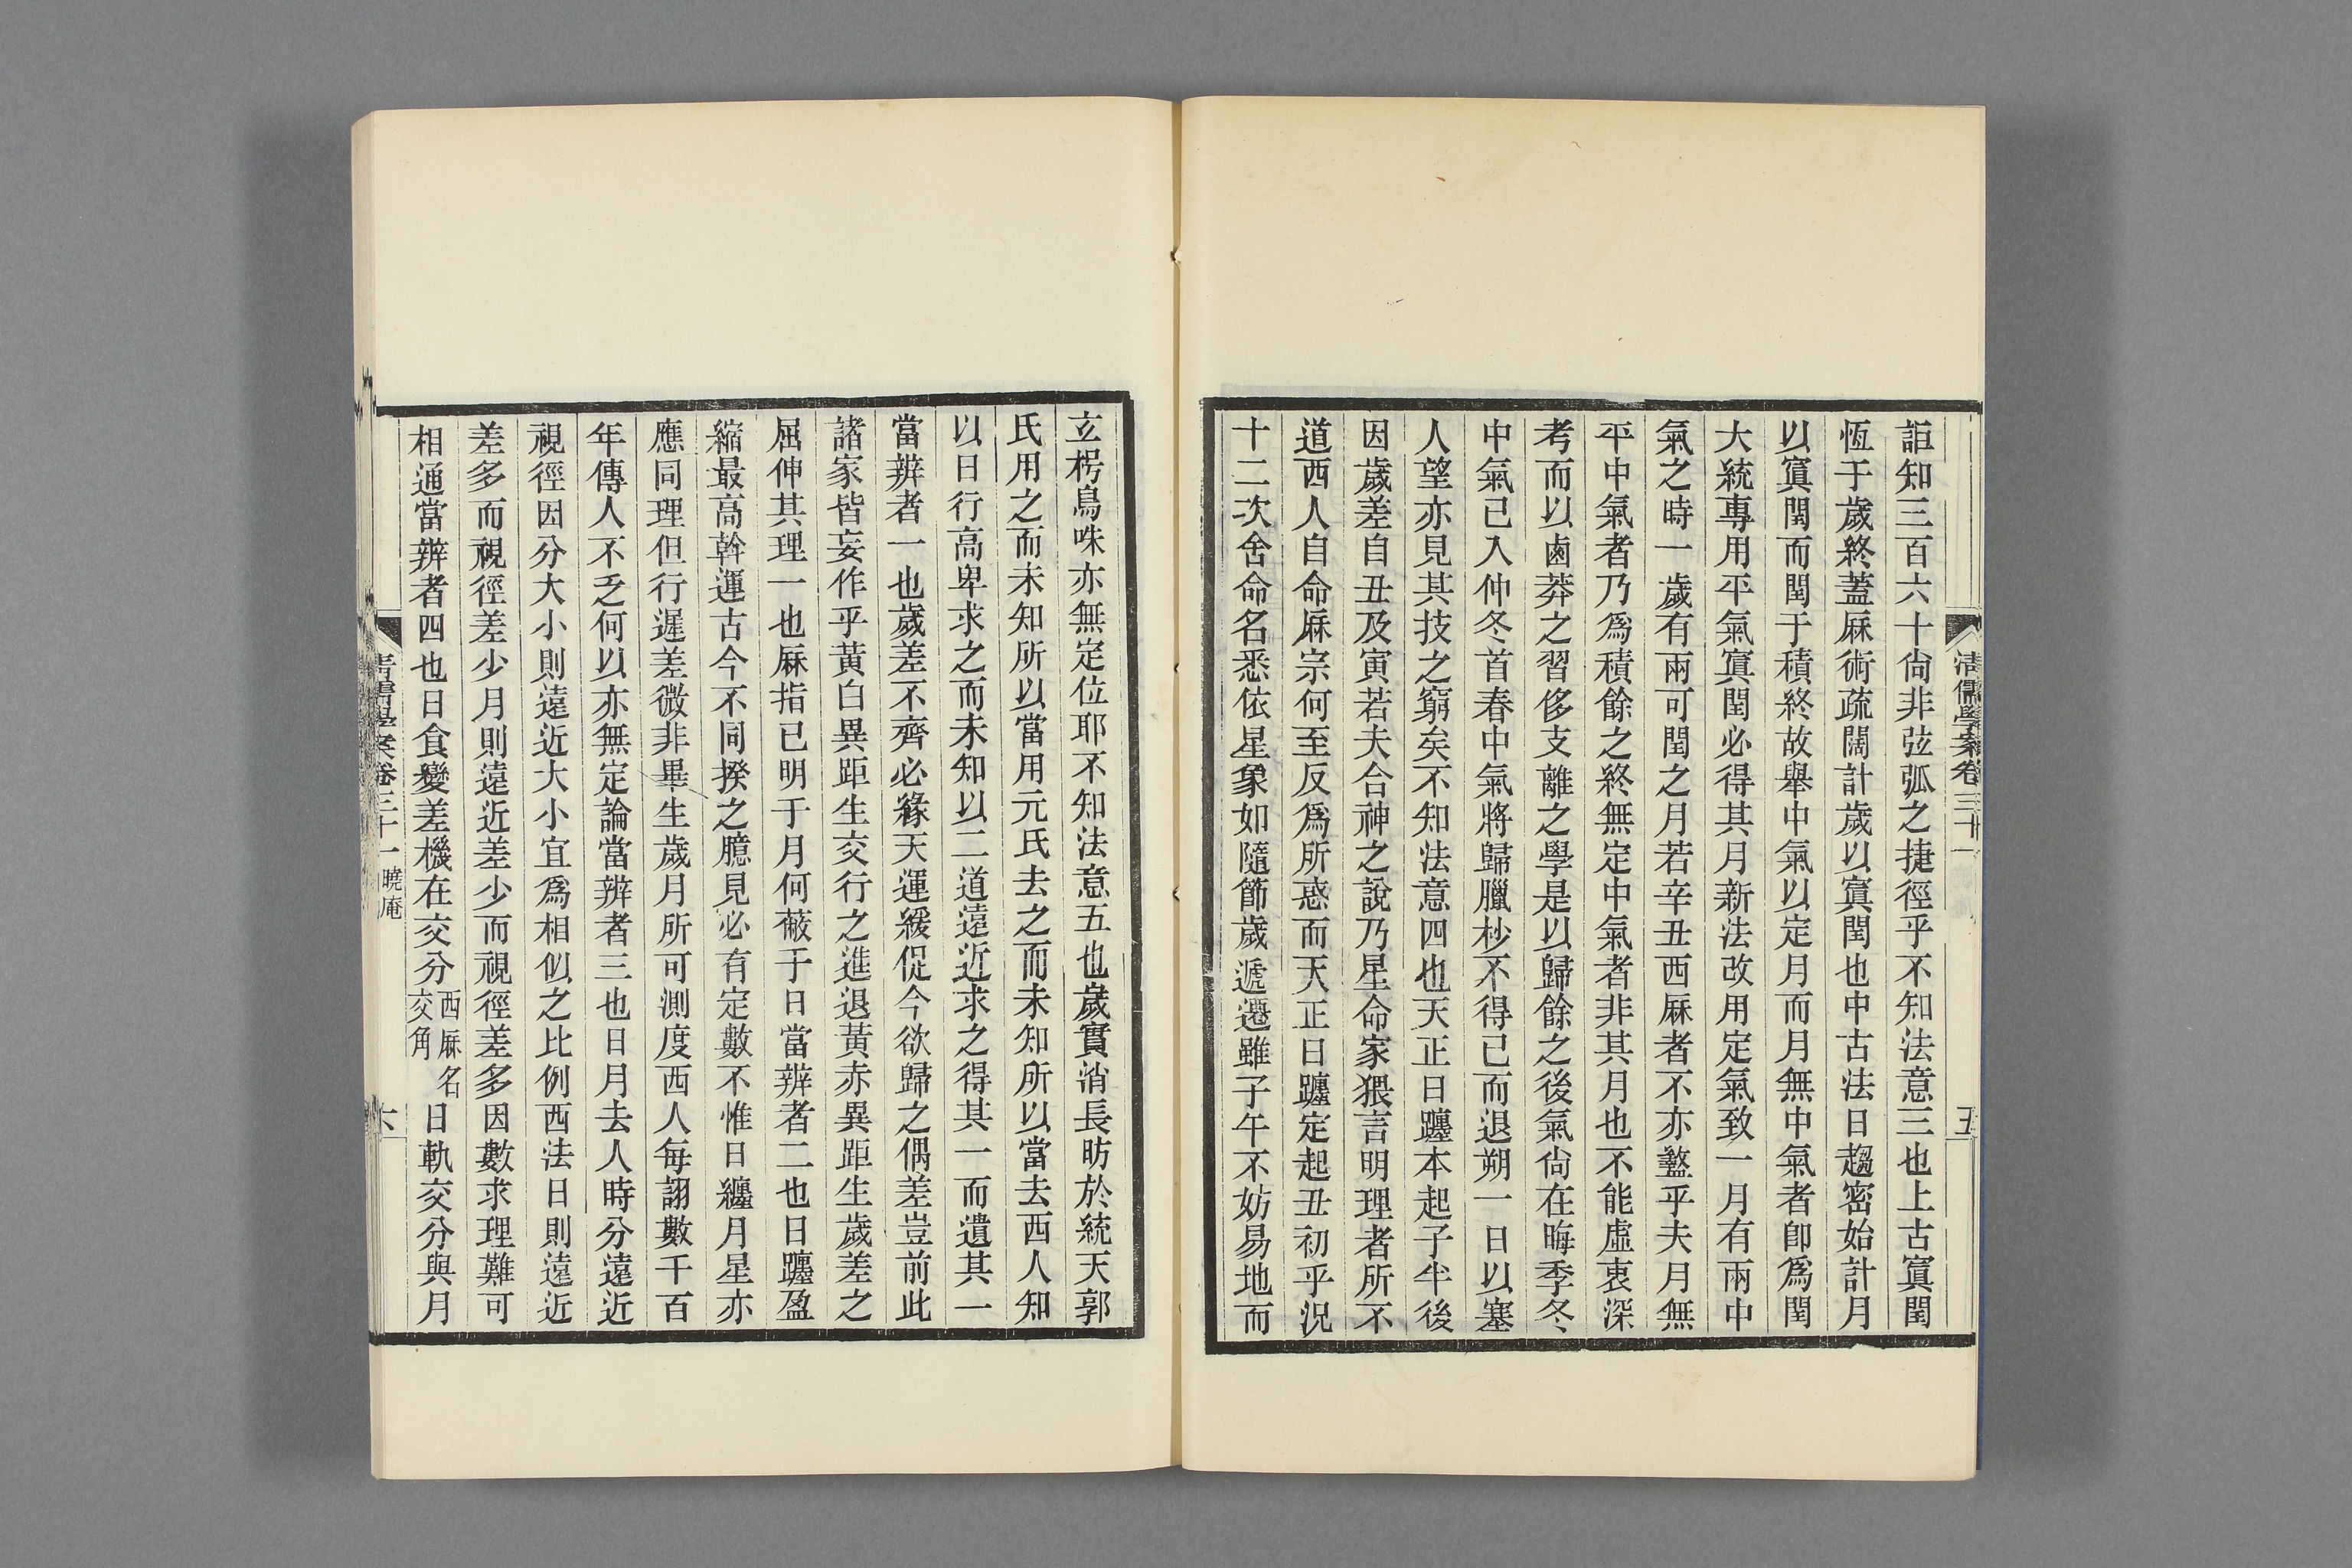 清儒學案卷三十一
五
詎知三百六十尙非弦弧之捷徑乎不知法意三也上古寘閏
恆于歲終蓋厤術疏闊計歲以寘閏也中古法日趨密始計月
以寘閏而閏于積終故舉中氣以定月而月無中氣者卽爲閏
大統專用平氣寘閏必得其月新法改用定氣致一月有兩中
氣之時一歲有兩可閏之月若辛丑西厤者不亦盭乎夫月無
平中氣者乃爲積餘之終無定中氣者非其月也不能虛衷深
考而以鹵莽之習侈支離之學是以歸餘之後氣尙在晦季冬
中氣已入仲冬首春中氣將歸臘杪不得已而退朔一日以塞
人望亦見其技之窮矣不知法意四也天正日躔本起子半後
因歲差自丑及寅若夫合神之說乃星命家猥言明理者所不
道西人自命厤宗何至反爲所惑而天正日躔定起丑初乎況
十二次舍命名悉依星象如隨節歲遞遷雖子午不妨易地而
玄枵鳥咮亦無定位耶不知法意五也歲實消長昉於統天郭
氏用之而未知所以當用元氏去之而未知所以當去西人知
以日行高卑求之而未知以二道遠近求之得其一而遺其一
當辨者一也歲差不齊必緣天運緩促今欲歸之偶差豈前此
諸家皆妄作乎黃白異距生交行之進退黃赤異距生歲差之
屈伸其理一也厤指已明于月何蔽于日當辨者二也日躔盈
縮最高斡運古今不同揆之臆見必有定數不惟日纏月星亦
應同理但行遲差微非畢生歲月所可測度西人每詡數千百
年傳人不乏何以亦無定論當辨者三也日月去人時分遠近
視徑因分大小則遠近大小宜爲相似之比例西法日則遠近
差多而視徑差少月則遠近差少而視徑差多因數求理難可
相通當辨者四也日食變差機在交分西厤名交角日軌交分與月
清儒學案卷三十一 曉庵
六